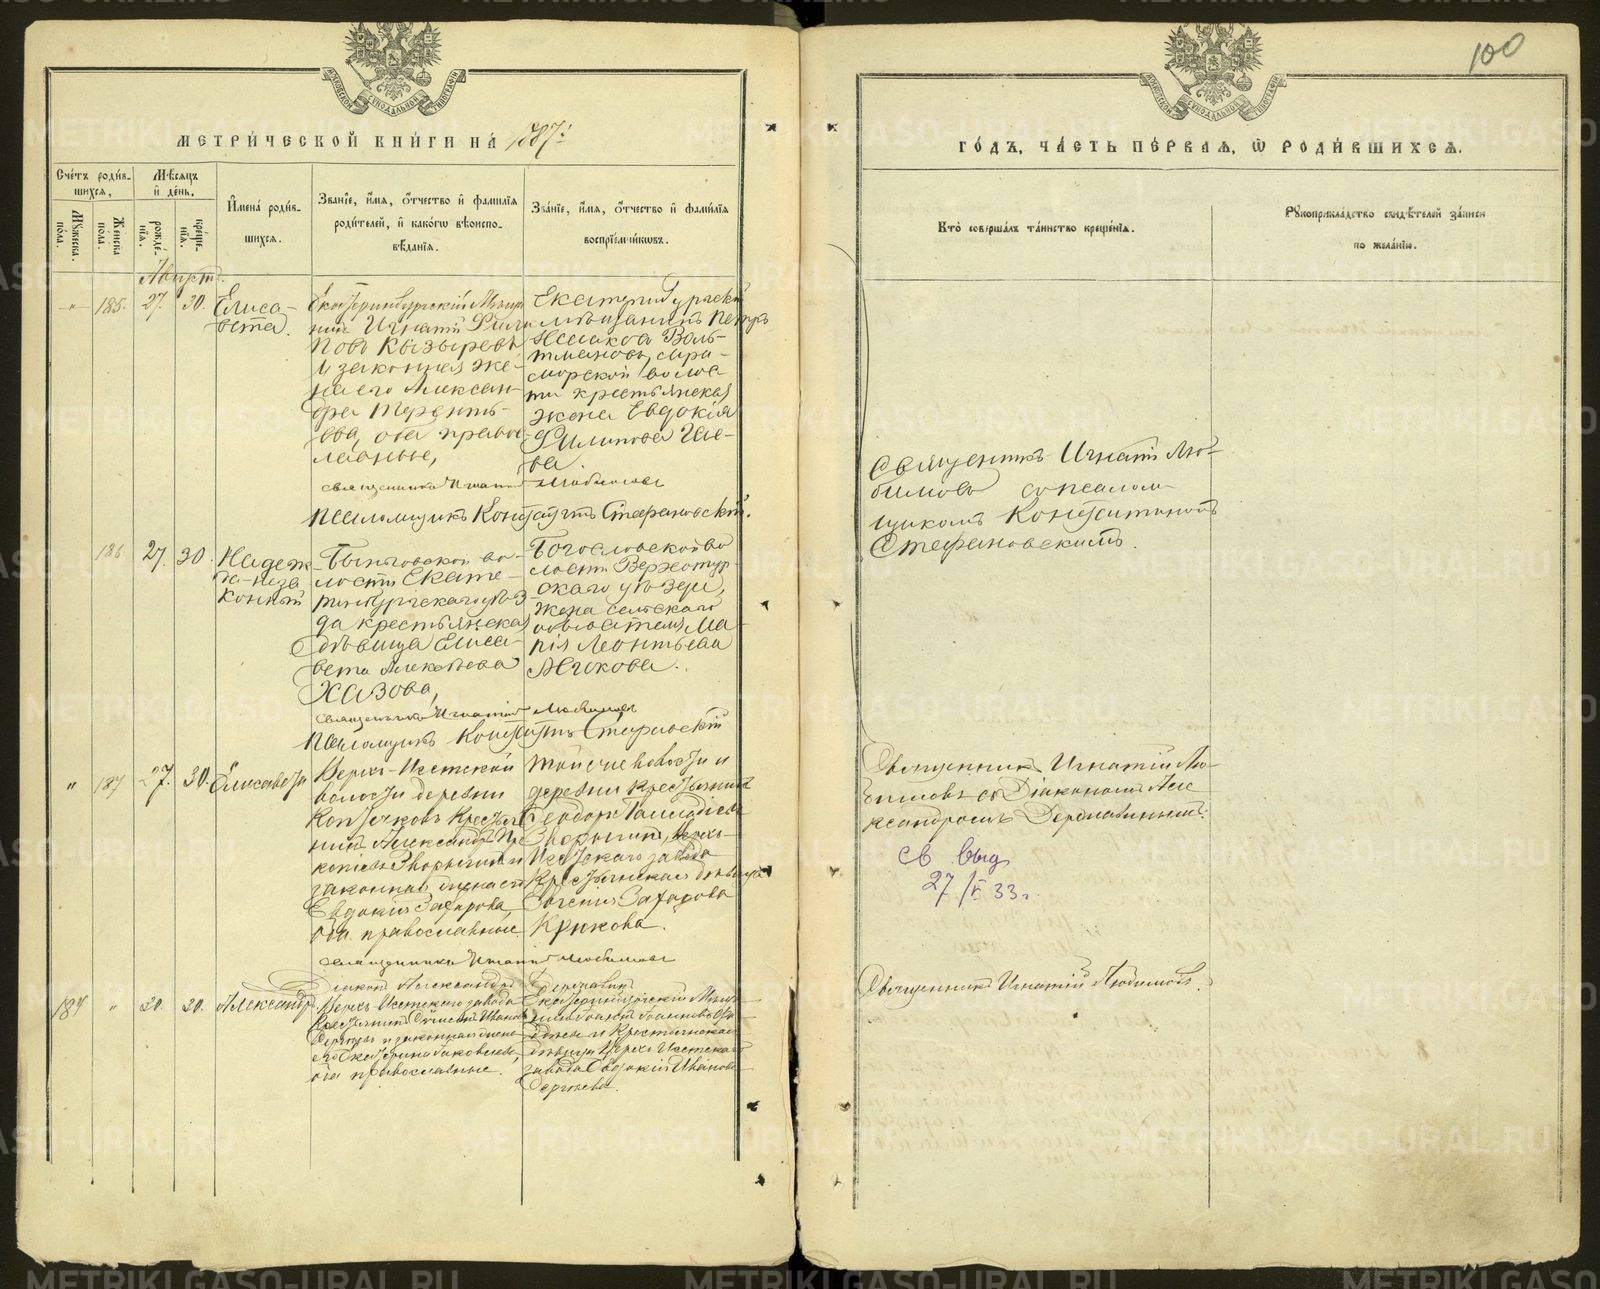 МЕТРИЧЕСКОЙ КНИГИ НА 1887:
Счетъ родив-
шихся,
Мѣсяцъ
и день.
Мужеска
пола.
Женска
пола.
рожде-
нія.
креще-
нія.
Имена родив-
шихся.
Званіе, имя, отчество и фамилія
родителей, и какогѡ вѣроиспо-
вѣданія.
Званіе, имя, отчество и фамилія
воспріемникѡвъ.
Августъ.
" 185. 27. 30. Елиса-
вета.
Екатеринбургскій Мѣща
нинъ Игнатій Фили
повъ Кызыревъ
и законная же-
на его Алексан-
дра Теренть-
ева, оба право
славные,
Екатеринбургскій
мѣщанинъ Петръ
Исааковъ Воль-
тмановъ,
морской волос
ти крестьянская
жена Евдокія
Филипова
ва.
священникъ Игнатій Любимовъ
Псаломщикъ Констант. Стефановскій.
186 27. 30. Надеж
да-неза
конный
Быньговской во-
лости Екате-
ринбургскаго уѣз
да крестьянская
дѣвица Елиса-
вета Алексѣева
Хазова,
Богословской во
лости Верхотур
скаго уѣзда,
жена сельскаго
обывателя, Ма
рія Леонтьева
священникъ Игнатій Любимовъ
Псаломщикъ Констант. Стефановскій
" 187 27. 30. Елисавета
Верхъ-Исетской
волости деревни
крестья
нинъ Александръ Про
копьевъ Зворыгинъ и
законная жена его
Евдокія Захарова,
оба православные
той же волости и
деревни крестьянинъ
Ѳеодоръ
Зворыгинъ, Верхъ-
Исетскаго завода
крестьянская дѣвица
Евгенія Захарова
Крюкова.
священникъ Игнатій Любимовъ
діаконъ Александръ Державинъ
184 " 30. 30. Александръ
Верхъ-Исетскаго завода
крестьянинъ Иванов
и законная жена
его Екатерина Яковлева,
оба православные.
Екатеринбургскій Мѣща
нинъ
и Крестьянская
дѣвица Верхъ Исетскаго
завода Евдокія Иванова
Сергѣева.
100
ГОДЪ, ЧАСТЬ ПЕРВАЯ, Ѡ РОДИВШИХСЯ.
Кто совершалъ таинство крещенія.
Рукоприкладство свидѣтелей записи
по желанію.
Священникъ Игнатій Лю-
бимовъ съ псалом-
щикомъ Константиномъ
Стефановскимъ.
Священникъ Игнатій Лю-
бимовъ съ Діакономъ Але
ксандромъ Державинымъ.
св выд
27/V 33 г.
Священникъ Игнатій Любимовъ.
METRIKI.GASO-URAL.RU